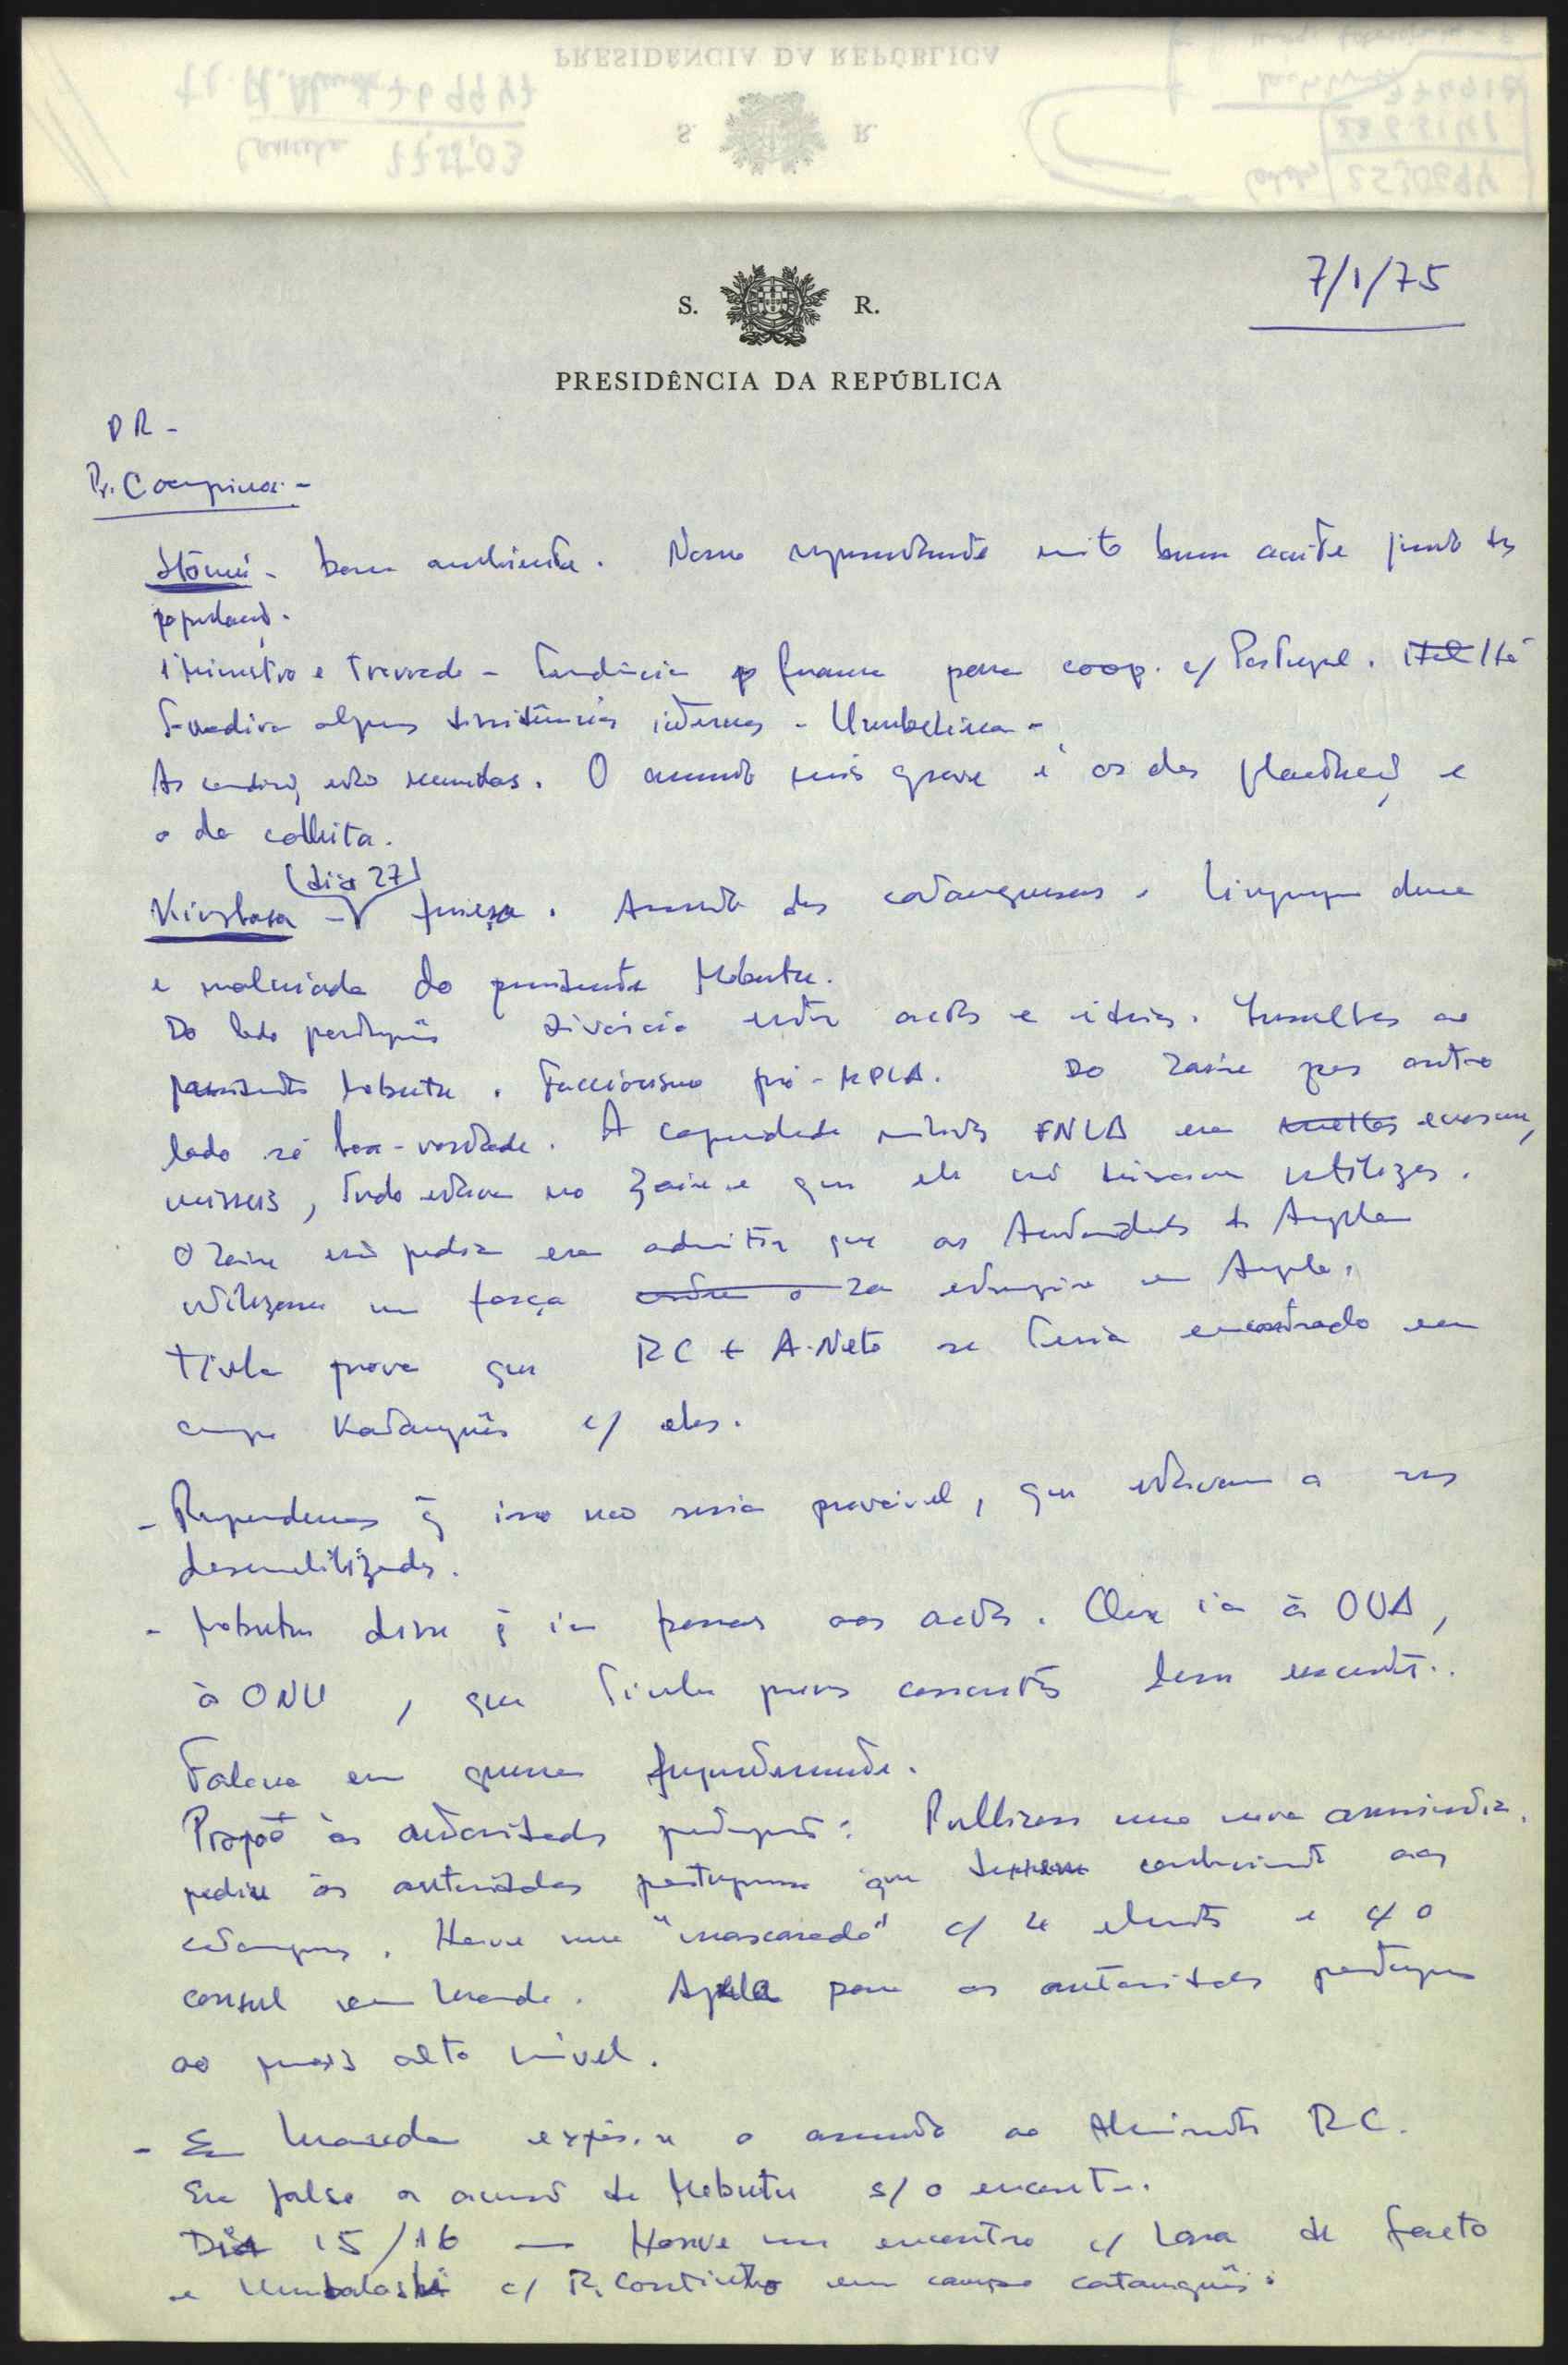 PRESIDÊNCIA DA REPÚBLICA
S. R.
7/1/75
S. R.
PRESIDÊNCIA DA REPÚBLICA
DR -
Pr. Campinos -
S Tomé - bom ambiente. Nosso representante muito bem aceite junto das
populações.
1º Ministro e Trovoada - Tendência franca para coop. c/ Portugal. Há
algumas dissidências internas - Umbelina -
As estão reunidas. O assunto mais grave é o das plantações e
o da colheita.
Kinshasa - (dia 27) frieza. Assunto dos catangueses. Linguagem dura
e malcriada do presidente Mobutu.
Do lado português divórcio entre actos e ideias. Insultos ao
presidente Mobutu. Faccionismo pró-MPLA. Do Zaire por outro
lado só boa-vontade. A capacidade militar FNLA era enorme,
misseis, tudo estava no Zaire e que ele não deixava utilizar.
O Zaire não podia era admitir que as Autoridades de Angola
utilizassem uma força estrangeira em Angola.
Tinha prova que RC e A. Neto se teria encontrado em
campo Katanguês c/ eles.
- Respondemos q isso não seria provável, que estavam a ser
desmobilizados.
- Mobutu disse q ia passar aos actos. Que ia à OUA,
à ONU, que tinha provas concretas desse encontro.
Falava em guerra frequentemente.
Propõe às autoridades portuguesas: Publicar uma nova amnistia.
pedir às autoridades portuguesas que conhecimento aos
catangueses. Houve uma "mascarada" c/ 4 elementos e c/ o
consul em Luanda. Apela para as autoridades portuguesas
ao mais alto nível.
- Em Luanda expôs-se o assunto ao Almirante RC.
Era falsa a acusação de Mobutu s/ o encontro.
Dia 15/16 — Houve um encontro c/ Lara de facto
e c/ R. Coutinho em campo catanguês: